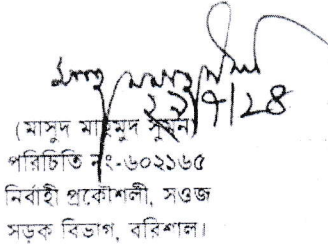 ২৯/৭/২৪
(মাসুদ মাহমুদ সুমন)
পরিচিতি নং-৬০২১৬৫
নির্বাহী প্রকৌশলী, সওজ
সড়ক বিভাগ, বরিশাল।